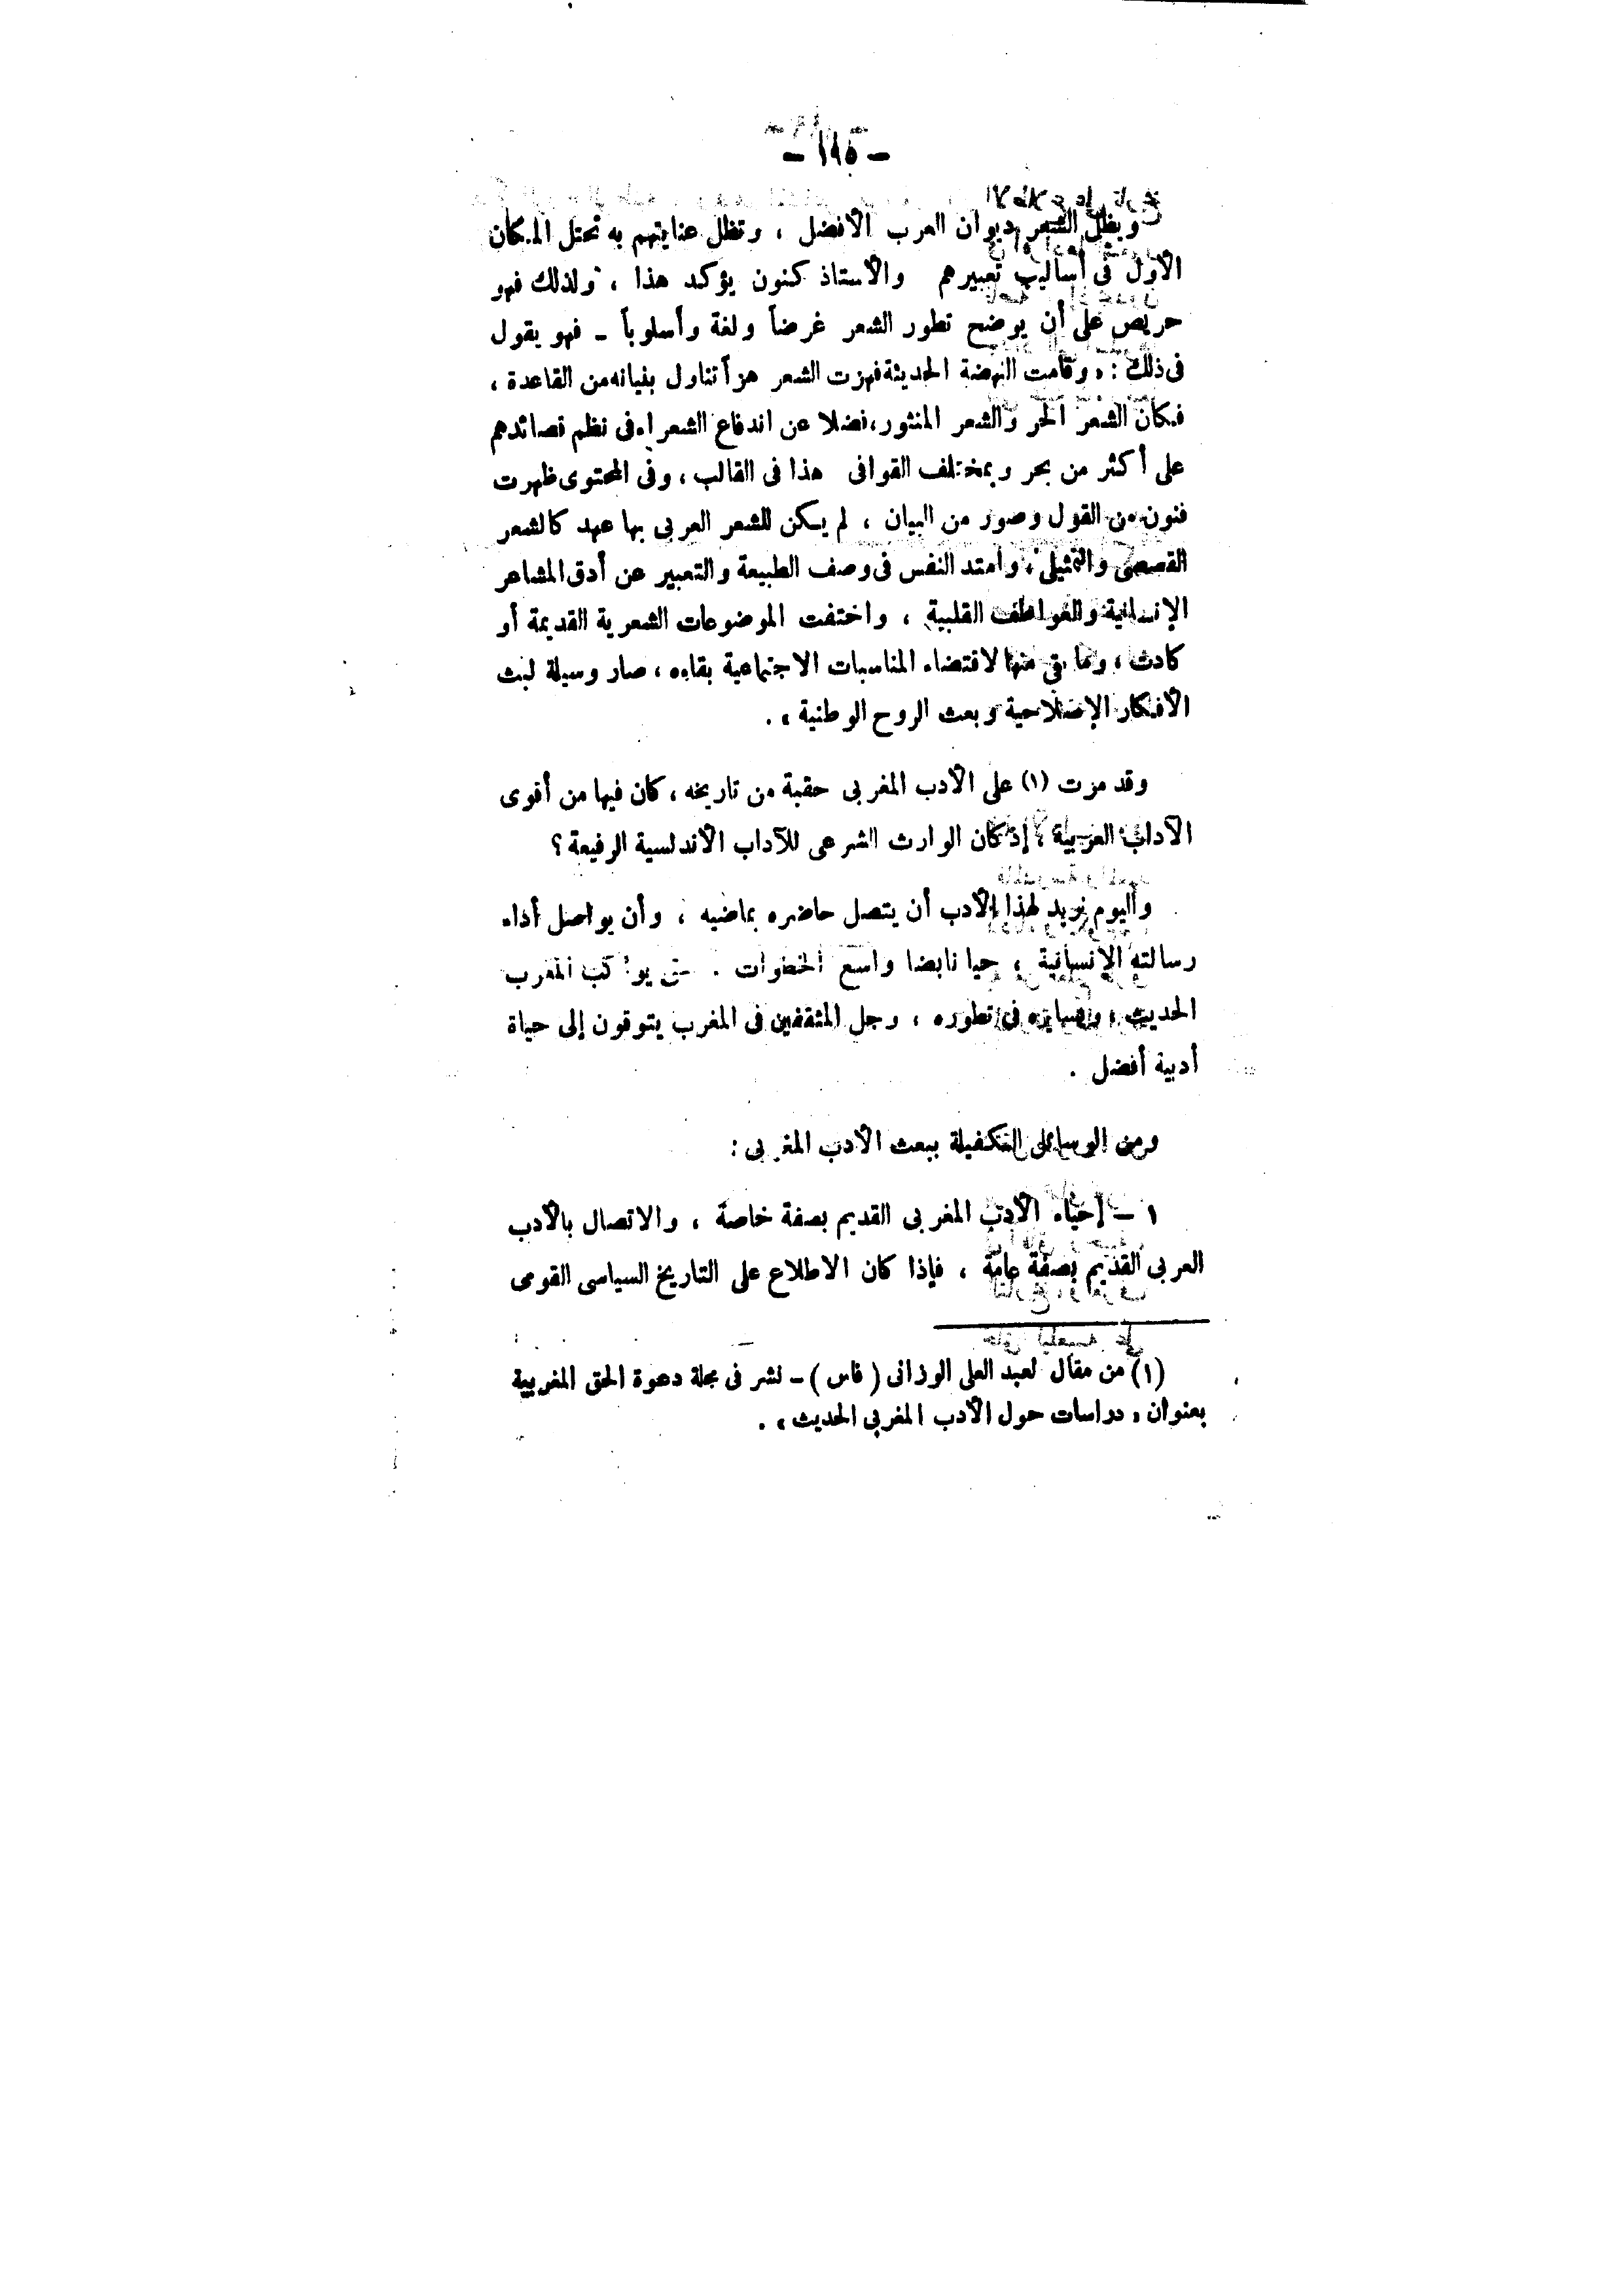 — ١٩٥ —
ويظل الشعر ديوان العرب الأفضل ، وتظل عنايتهم به تحتل المكان
الأول فى أساليب تعبيرهم والأستاذ كنون يؤكد هذا ، ولذلك فهو
حريص على أن يوضح تطور الشعر غرضاً ولغة وأسلوباً ـ فهو يقول
فى ذلك : « وقامت النهضة الحديثة فهزت الشعر هزاً تناول بنيانه من القاعدة ،
فكان الشعر الحر والشعر المنثور ، فضلا عن اندفاع الشعراء فى نظم قصائدهم
على أكثر من بحر وبمختلف القوافى هذا فى القالب ، وفى المحتوى ظهرت
فنون من القول وصور من البيان ، لم يكن للشعر العربى بها عهد كالشعر
القصصى والتمثيلى ، وامتد النفس فى وصف الطبيعة والتعبير عن أدق المشاعر
الإنسانية والعواطف القلبية ، واختفت الموضوعات الشعرية القديمة أو
كادت ، وما بقى منها لاقتضاء المناسبات الاجتماعية بقاءه ، صار وسيلة لبث
الأفكار الإصلاحية وبعث الروح الوطنية » .
وقد مرت (١) على الأدب المغربى حقبة من تاريخه ، كان فيها من أقوى
الآداب العربية ، إذ كان الوارث الشرعى للآداب الأندلسية الرفيعة ؟
واليوم نريد لهذا الأدب أن يتصل حاضره بماضيه ، وأن يواصل أداء
رسالته الإنسانية ، حيا نابضا واسع الخطوات . حتى يواكب المغرب
الحديث ، ويسايره فى تطوره ، وجل المثقفين فى المغرب يتوقون إلى حياة
أدبية أفضل .
ومن الوسائل الكفيلة ببعث الأدب المغربى :
١ — إحياء الأدب المغربى القديم بصفة خاصة ، والاتصال بالأدب
العربى القديم بصفة عامة ، فإذا كان الاطلاع على التاريخ السياسى القومى
(١) من مقال لعبد العلى الوزانى ( فاس ) ـ نشر فى مجلة دعوة الحق المغربية
بعنوان « دراسات حول الأدب المغربى الحديث » .